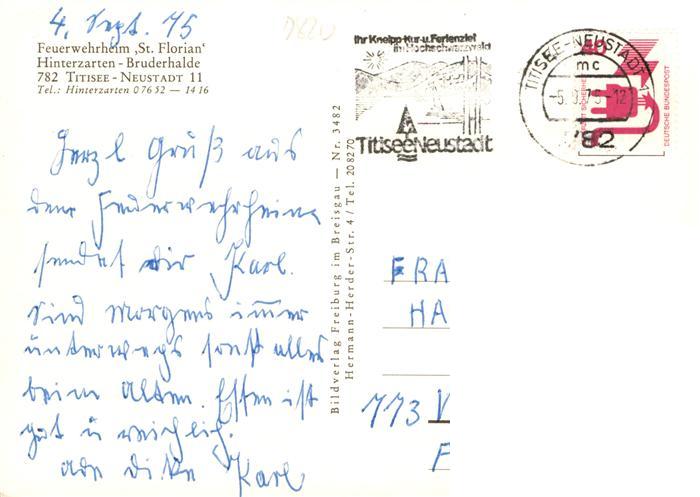 4. Sept. 75
Feuerwehrheim ‚St. Florian‘
Hinterzarten - Bruderhalde
782 TITISEE - NEUSTADT 11
Tel.: Hinterzarten 0 76 52 — 14 16
Herzl Gruß aus
dem Feuerwehrheim
sendet dir Karl.
Sind Morgens immer
unterwegs sonst alles
beim Alten. Essen ist
gut u reichlich.
Karl
Bildverlag Freiburg im Breisgau — Nr. 3482
Hermann-Herder-Str. 4 / Tel. 208270
Ihr Kneipp-Kur-u. Ferienziel
im Hochschwarzwald
TitiseeNeustadt
TITISEE-NEUSTADT 1
mc
-5.9.75-12
782
40
DEUTSCHE BUNDESPOST
FRA
HA
773 V
F